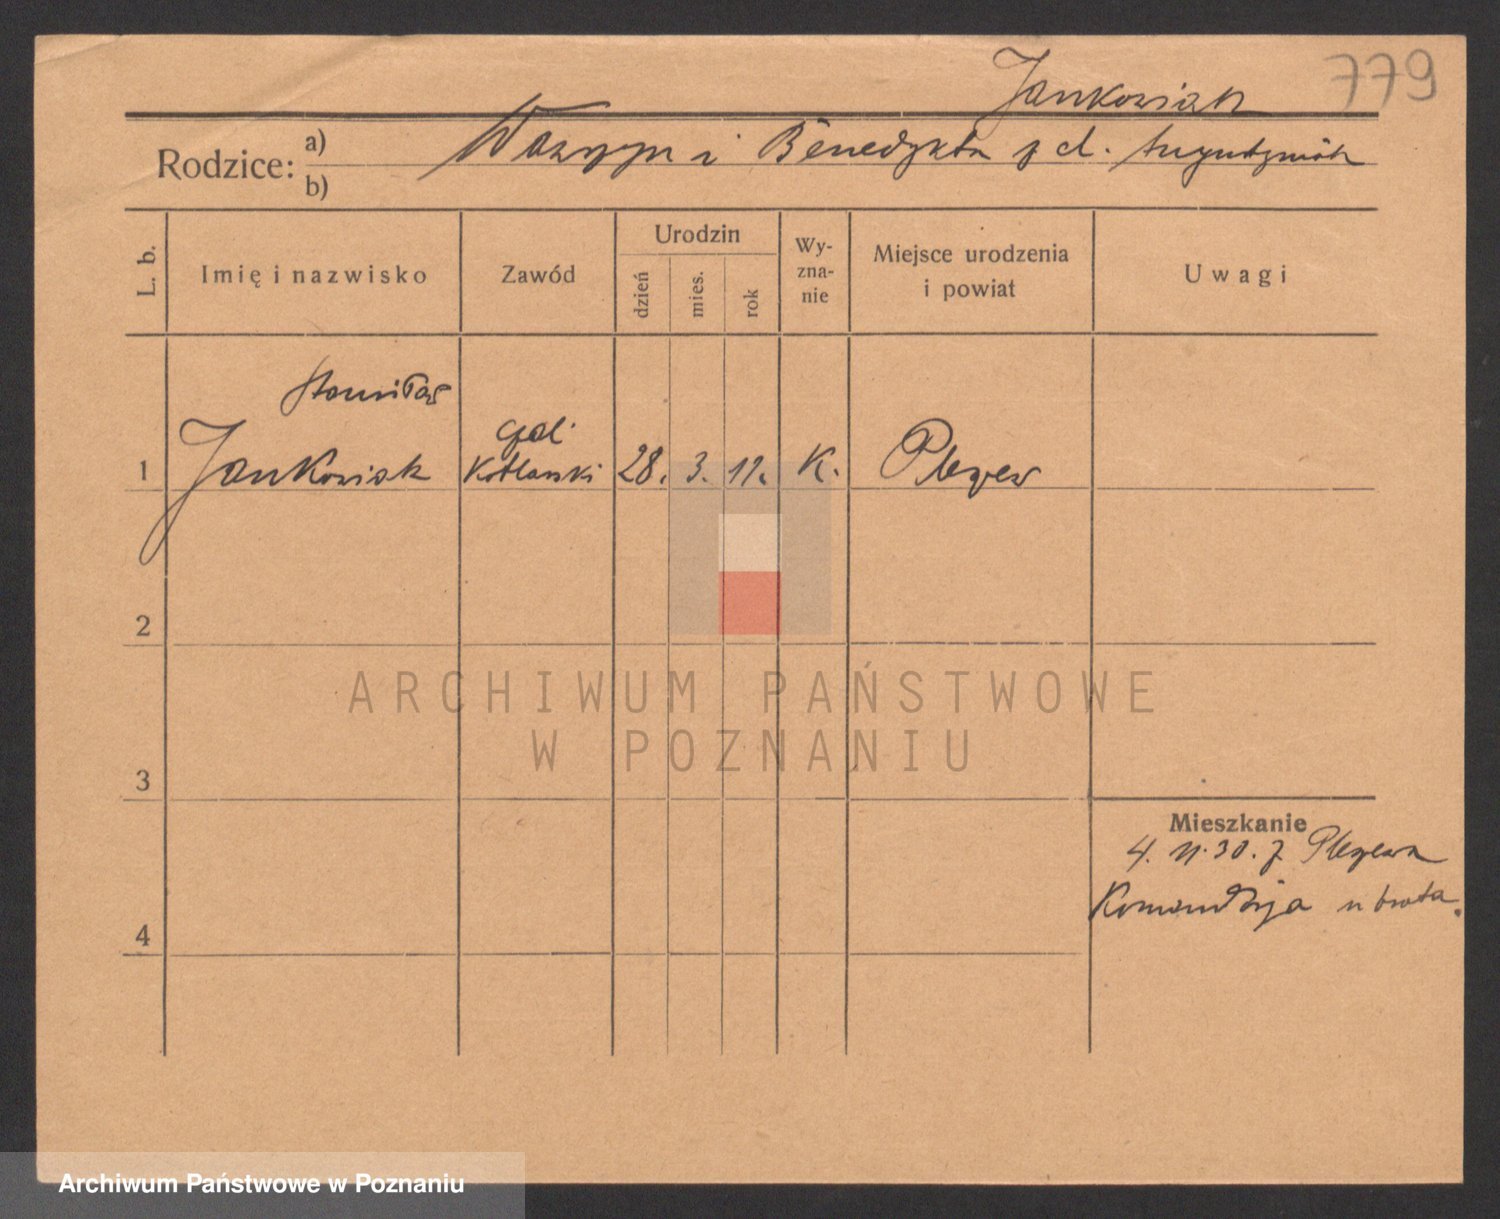 Jankowiak 779
Rodzice: a) Wawrzyn i Benedykta z d.
b)
L. b.
Imię i nazwisko
Zawód
Urodzin
dzień
mies.
rok
Wy-
zna-
nie
Miejsce urodzenia
i powiat
Uwagi
Stanisław
czel.
1 Jankowiak kotlarski 28. 3. 11. K. Pleszew
2
3
4
Mieszkanie
4. 11. 30. z Pleszewa
u brata.
ARCHIWUM PAŃSTWOWE
W POZNANIU
Archiwum Państwowe w Poznaniu